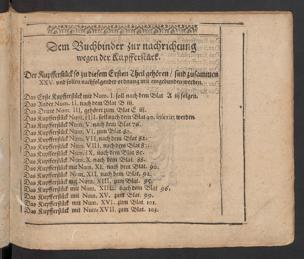 Dem Buchbinder zur nachrichtung
wegen der Kupfferstück.
Der Kupfferstück so zu diesem Ersten Theil gehören / sind zusammen
XXV. und sollen nachfolgender ordnung mit eingebunden werden.
Das Erste Kupfferstück mit Num. I. soll nach dem Blat A iij folgen.
Das Ander Num. II. nach dem Blat B iij.
Das Dritte Num. III. gehöret zum Blat E iij.
Das Kupfferstück Num. IIII. soll nach dem Blat 40. werden
Das Kupfferstück Num. V. nach dem Blat 76.
Das Kupfferstück Num. VI. zum Blat 80.
Das Kupfferstück Num. VII. nach dem Blat 82.
Das Kupfferstück Num. VIII. nach dem Blat
Das Kupfferstück Num. IX. nach dem Blat 86.
Das Kupfferstück Num. X. nach dem Blat 88.
Das Kupfferstück mit Num. XI. nach dem Blat 90.
Das Kupfferstück Num. XII. nach dem Blat 92.
Das Kupfferstück mit Num. XIII. zum Blat 95.
Das Kupfferstück mit Num. XIIII. nach dem Blat 96.
Das Kupfferstück mit Num. XV. zum Blat 99.
Das Kupfferstück mit Num. XVI. zum Blat 101.
Das Kupfferstück mit Num. XVII. zum Blat 103.